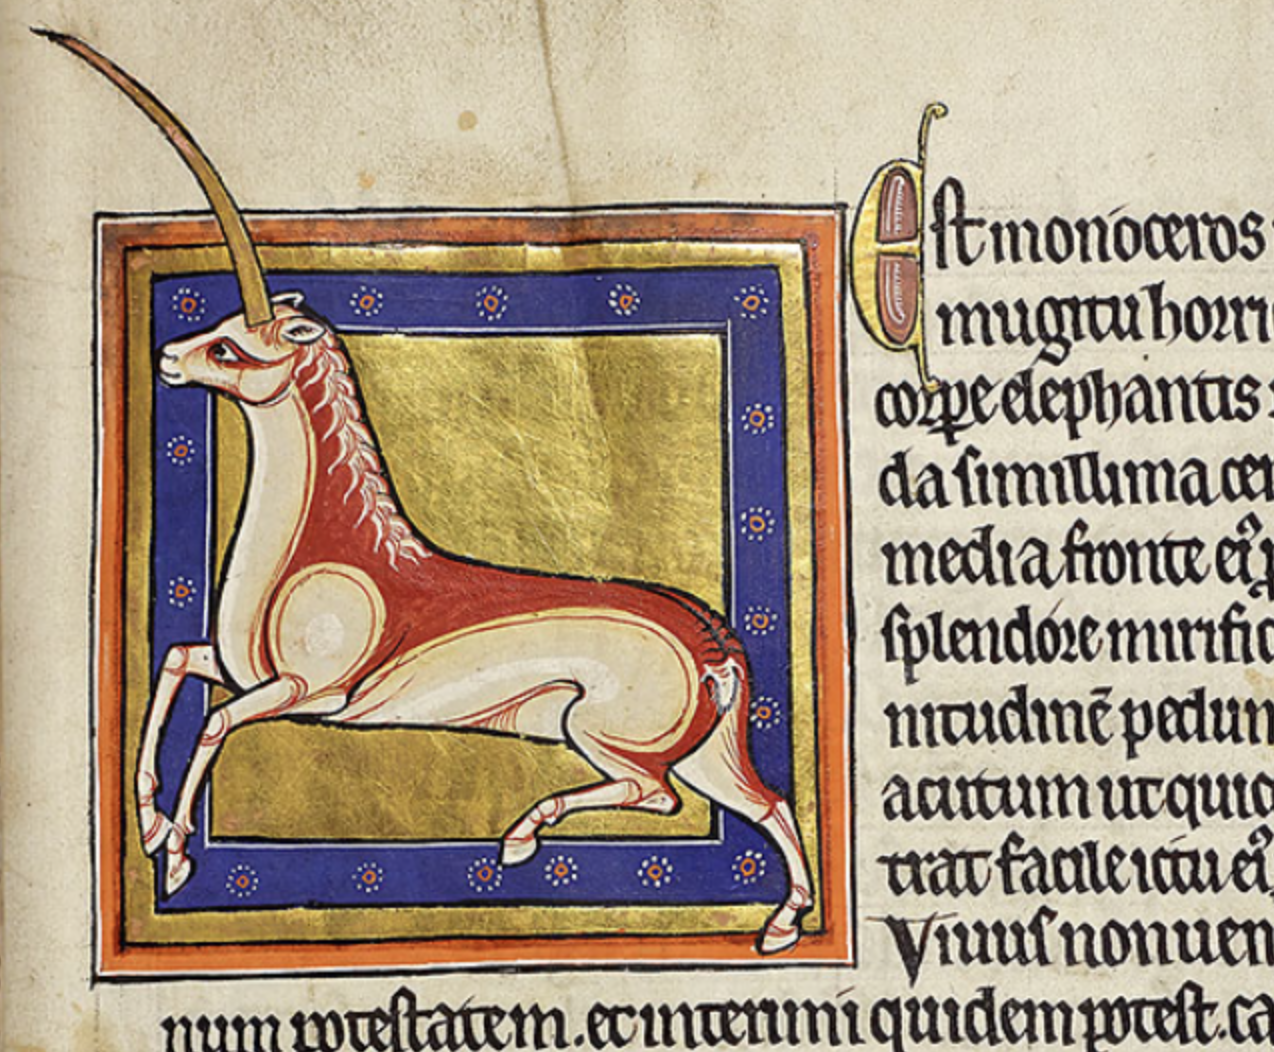 Est monoceros
mugitu horri
corpe elephantis
da simillima cer
media fronte ei'
splendore mirific
nitudinē pedum
acutum ut quic
trat facile ictu ei'
Vivus non uen
num potestatem. et interimi quidem potest. ca